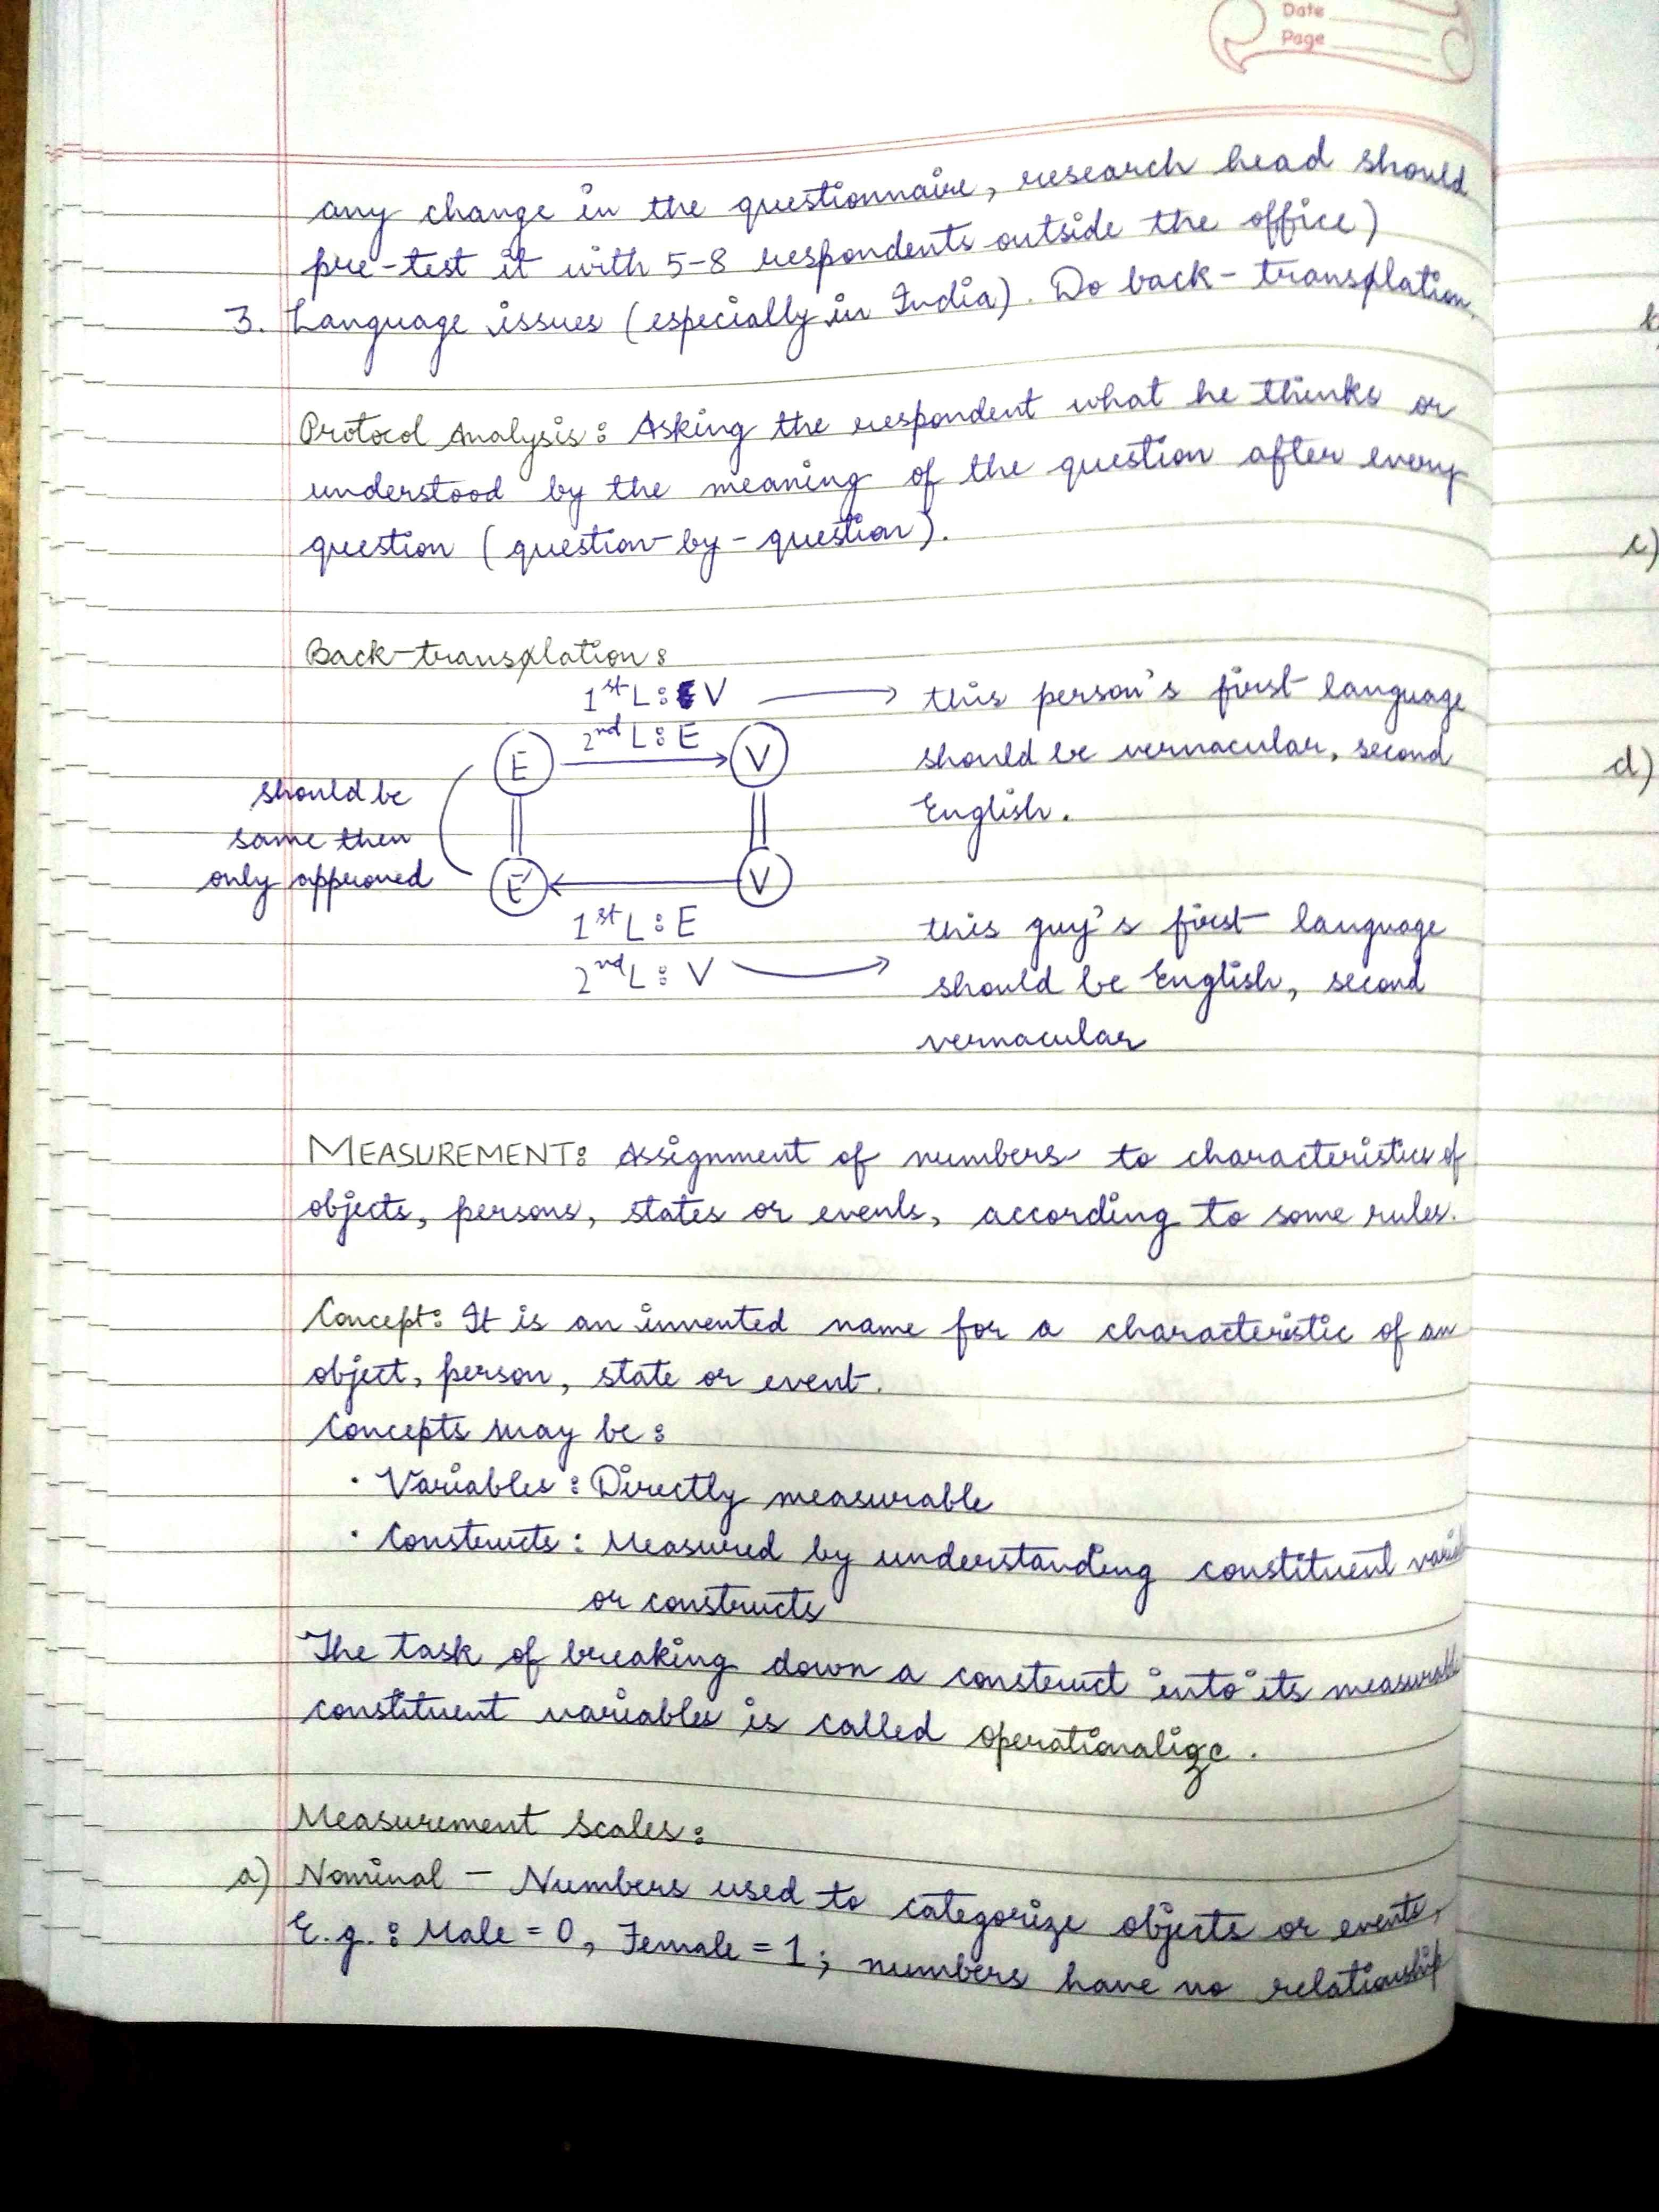 Date
Page
any change in the questionnaire, research head should
pre-test it with 5-8 respondents outside the office)
3. Language issues (especially in India). Do back-translation.
Protocol Analysis: Asking the respondent what he thinks or
understood by the meaning of the question after every
question (question-by-question).
Back-translation:
1st L: V → this person's first language
2nd L: E
E → V should be vernacular, second
English.
should be
same then
only approved
E' ← V
1st L: E this guy's first language
2nd L: V → should be English, second
vernacular
MEASUREMENT: Assignment of numbers to characteristics of
objects, persons, states or events, according to some rules.
Concept: It is an invented name for a characteristic of an
object, person, state or event.
Concepts may be:
· Variables: Directly measurable
· Constructs: Measured by understanding constituent
or constructs
The task of breaking down a construct into its measurable
constituent variables is called operationalize.
Measurement Scales:
a) Nominal - Numbers used to categorize objects or events,
E.g.: Male = 0, Female = 1; numbers have no relationship
c)
d)